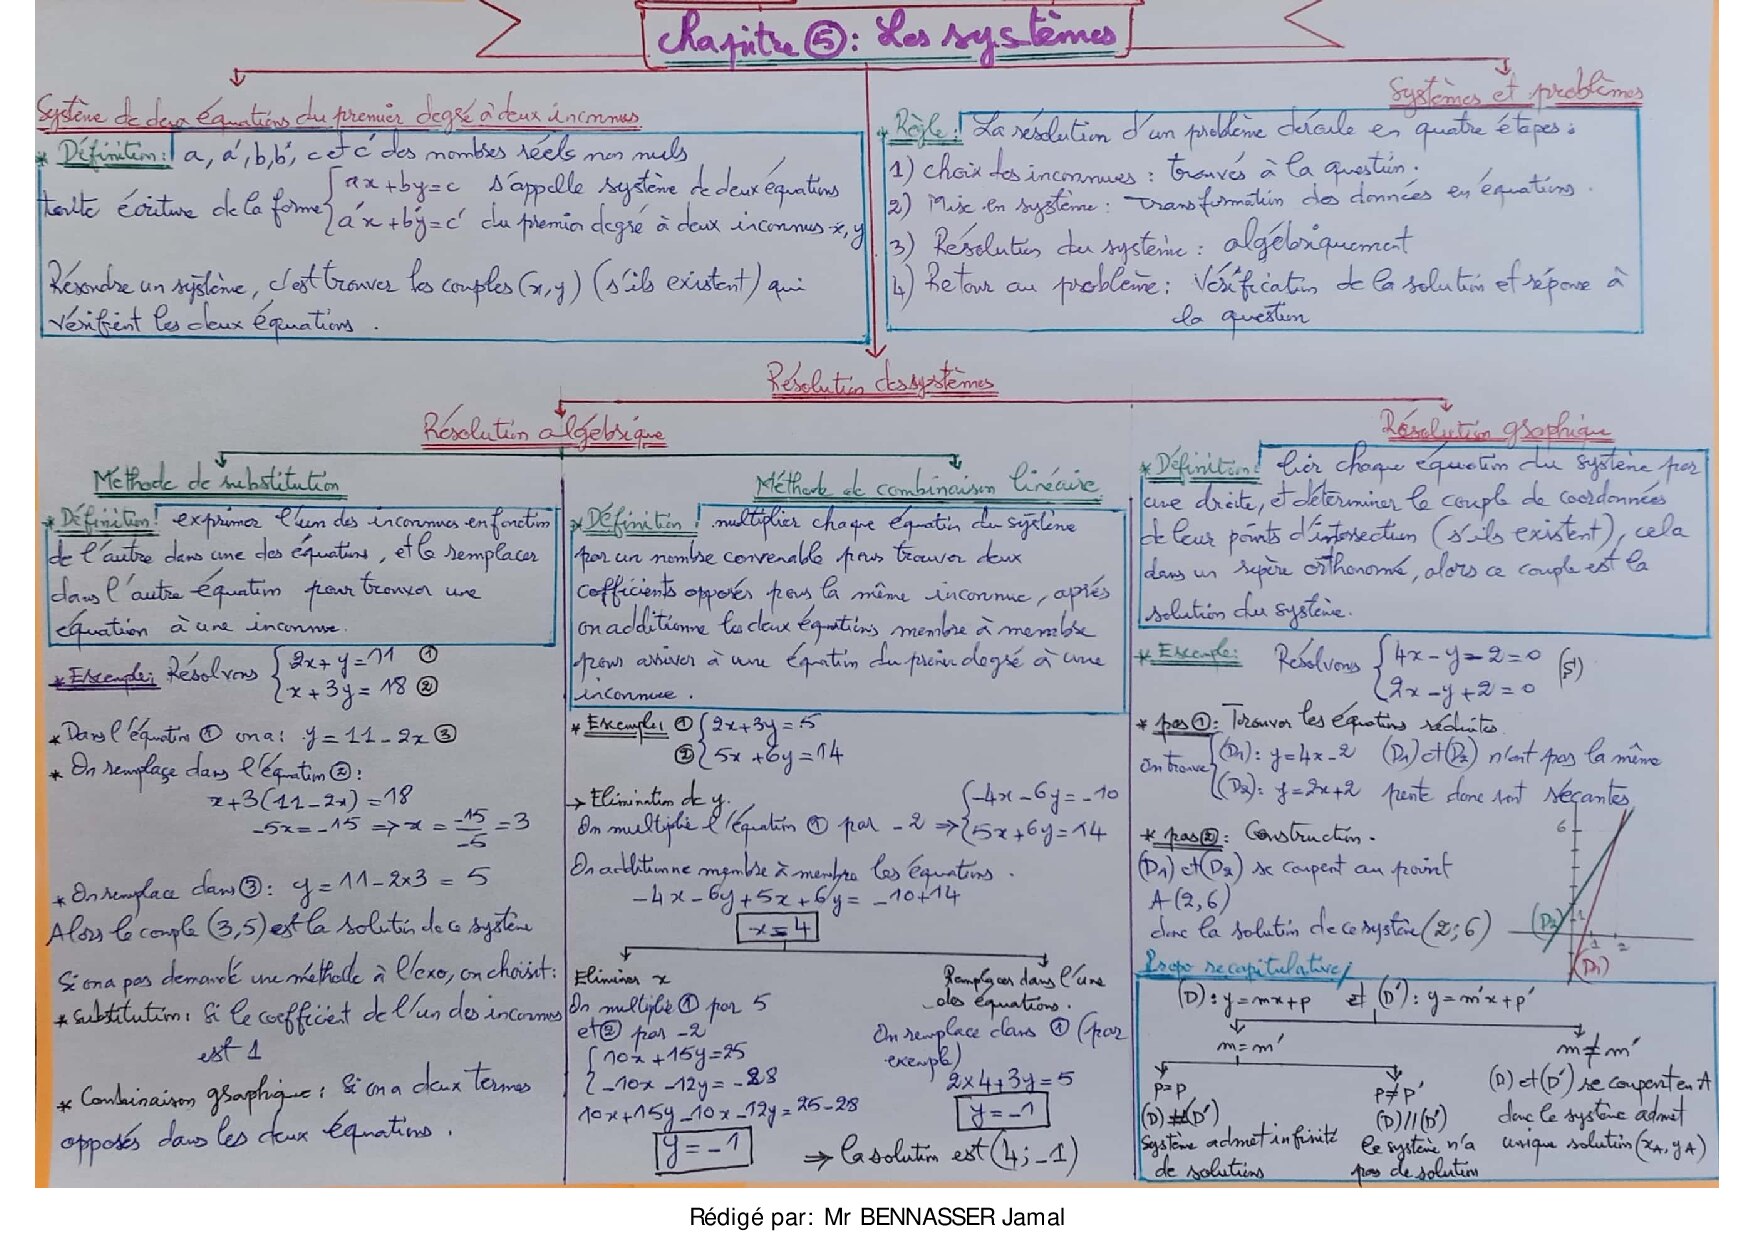 Chapitre ⑤: Les systèmes
Système de deux équations du premier degré à deux inconnues
* Définition: a, a', b, b', c et c' des nombres réels non nuls
toute écriture de la forme { ax + by = c s'appelle système de deux équations
a'x + b'y = c' du premier degré à deux inconnus x, y
Résoudre un système, c'est trouver les couples (x,y) (s'ils existent) qui
vérifient les deux équations.
Systèmes et problèmes
* Règle: La résolution d'un problème déroule en quatre étapes:
1) choix des inconnues : trouvés à la question.
2) Mise en système : Transformation des données en équations.
3) Résolution du système : algébriquement
4) Retour au problème : Vérification de la solution et réponse à
la question
Résolution des systèmes
Résolution algébrique
Méthode de substitution
* Définition: exprimer l'un des inconnues en fonction
de l'autre dans une des équations, et le remplacer
dans l'autre équation pour trouver une
équation à une inconnue.
* Exemple: Résolvons { 2x + y = 11 ①
x + 3y = 18 ②
* Dans l'équation ① on a: y = 11 - 2x ③
* On remplaçe dans l'équation ②:
x + 3(11 - 2x) = 18
-5x = -15 => x = -15/-5 = 3
* On remplace dans ③: y = 11 - 2x3 = 5
Alors le couple (3,5) est la solution de ce système
Si on a pas demandé une méthode à l'exo, on choisit:
* Substitution: Si le coefficient de l'un des inconnues
est 1
* Combinaison graphique: Si on a deux termes
opposés dans les deux équations.
Méthode de combinaison linéaire
* Définition: multiplier chaque équation du système
par un nombre convenable pour trouver deux
cofficients opposés pour la même inconnue, après
on additionne les deux équations membre à membre
pour arriver à une équation du premier degré à une
inconnue.
* Exemple: ① { 2x + 3y = 5
② 5x + 6y = 14
→ Elimination de y.
On multiplie l'équation ① par -2 => { -4x - 6y = -10
5x + 6y = 14
On additionne membre à membre les équations.
-4x - 6y + 5x + 6y = -10 + 14
x = 4
Eliminer x
On multiplie ① par 5
et ② par -2
{ 10x + 15y = 25
-10x - 12y = -28
10x + 15y - 10x - 12y = 25 - 28
y = -1
Remplacer dans l'une
des équations.
On remplace dans ① (par
exemple)
2x4 + 3y = 5
y = -1
=> la solution est (4; -1)
Résolution graphique
* Définition: lier chaque équation du système par
une droite, et déterminer le couple de coordonnées
de leur points d'intersection (s'ils existent), cela
dans un repère orthonomé, alors ce couple est la
solution du système.
* Exemple: Résolvons { 4x - y - 2 = 0 (S)
2x - y + 2 = 0
* pas①: Trouver les équations réduites.
on trouve { (D1): y = 4x - 2 (D1) et (D2) n'ont pas la même
(D2): y = 2x + 2 pente donc sont sécantes
* pas②: Construction.
(D1) et (D2) se coupent au point
A(2,6)
donc la solution de ce système (2; 6)
6
(D2)
1
1 2
(D1)
Propo recapitulative/
(D): y = mx + p et (D'): y = m'x + p'
m = m'
m ≠ m'
p = p
(D) (D')
Système admet infinité
de solutions
p ≠ p'
(D) // (D')
le système n'a
pas de solution
(D) et (D') se coupent en A
donc le système admet
unique solution (xA, yA)
Rédigé par: Mr BENNASSER Jamal